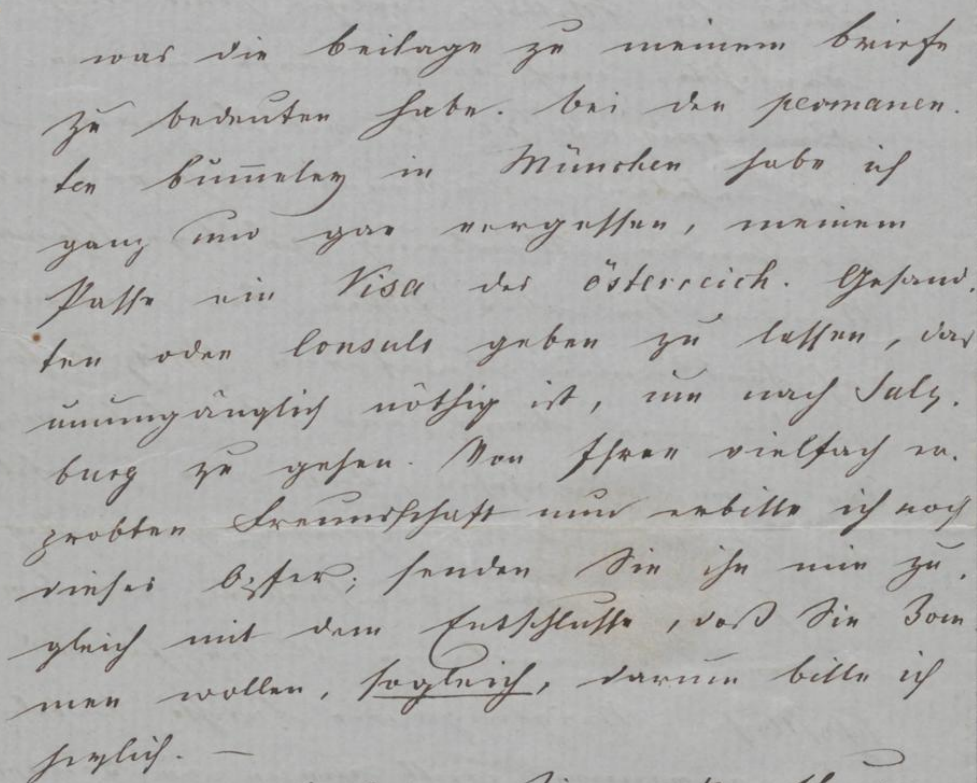 was die beilage zu meinem briefe
zu bedeuten habe. bei den permanen.
ten bum̅eley in München habe ich
ganz und gar vergessen, meinem
Passe ein Visa des österreich. Gesand.
ten oder Consuls geben zu lassen, das
unumgänglich nöthig ist, um nach Salz.
burg zu gehen. Von Ihrer vielfach er.
probten Freundschaft nun erbitte ich noch
dieses Opfer; senden Sie ihn mir zu.
gleich mit dem Entschlusse, daß Sie kom
men wollen, sogleich, darum bitte ich
herzlich. —